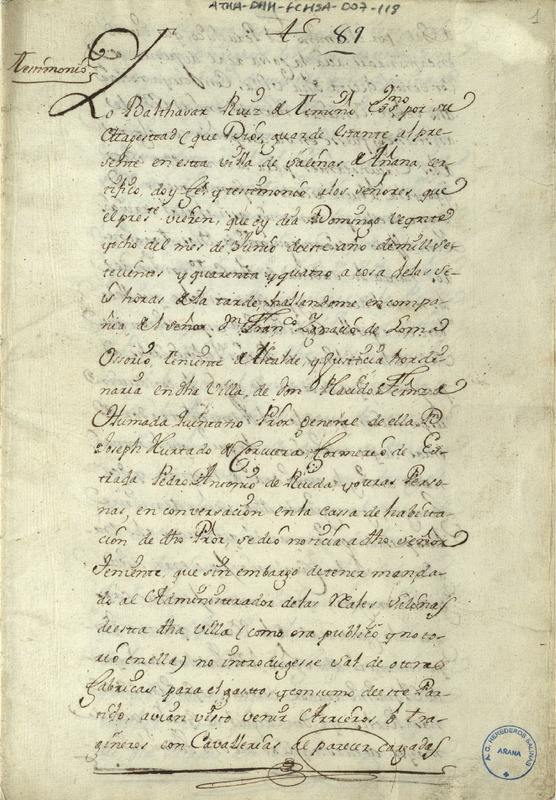 ATHA-DAH-FCHSA-007-118
1
4º 89
Testimonio
Yo Balthasar Ruiz de Ximeno Essno por su
Magestad (que Dios guarde) estante al pre-
sente en esta villa de Salinas de Añana, cer-
tifico, doy fee, y testimonio a los señores que
el preste vieren, que oy dia Domingo veynte
y ocho del mes de Junio de este año de mill se-
tecientos y quarenta y quatro a cosa de las se-
is horas de la tarde hallandome en compa-
ñia del señor Dn Franco Ignacio de Loma
Ossorio Theniente de Alcalde, y Justicia hordi-
naria en dha Villa, de Don Placido Fernz de
Ahumada Quintano Pror General de ella Dn
Joseph Hurtado de Corcuera, Hermenexdo de Es-
trada Pedro Antonio de Rueda, y otras Perso-
nas, en conversacion en la cassa de havita-
cion de dho Pror, se dió noticia a dho señor
Teniente, que sin embargo de tener manda-
do al Administrador de las Reales Salinas
de esta dha villa (como era publico y noto-
rio en ella) no introdugesse sal de otras
fabricas para el gasto, y consumo de este Par-
tido, avian visto venir Arrieros, ó tra-
gineros con Cavallerias al parecer cargadas
A.C. HEREDEROS SALINAS
AÑANA